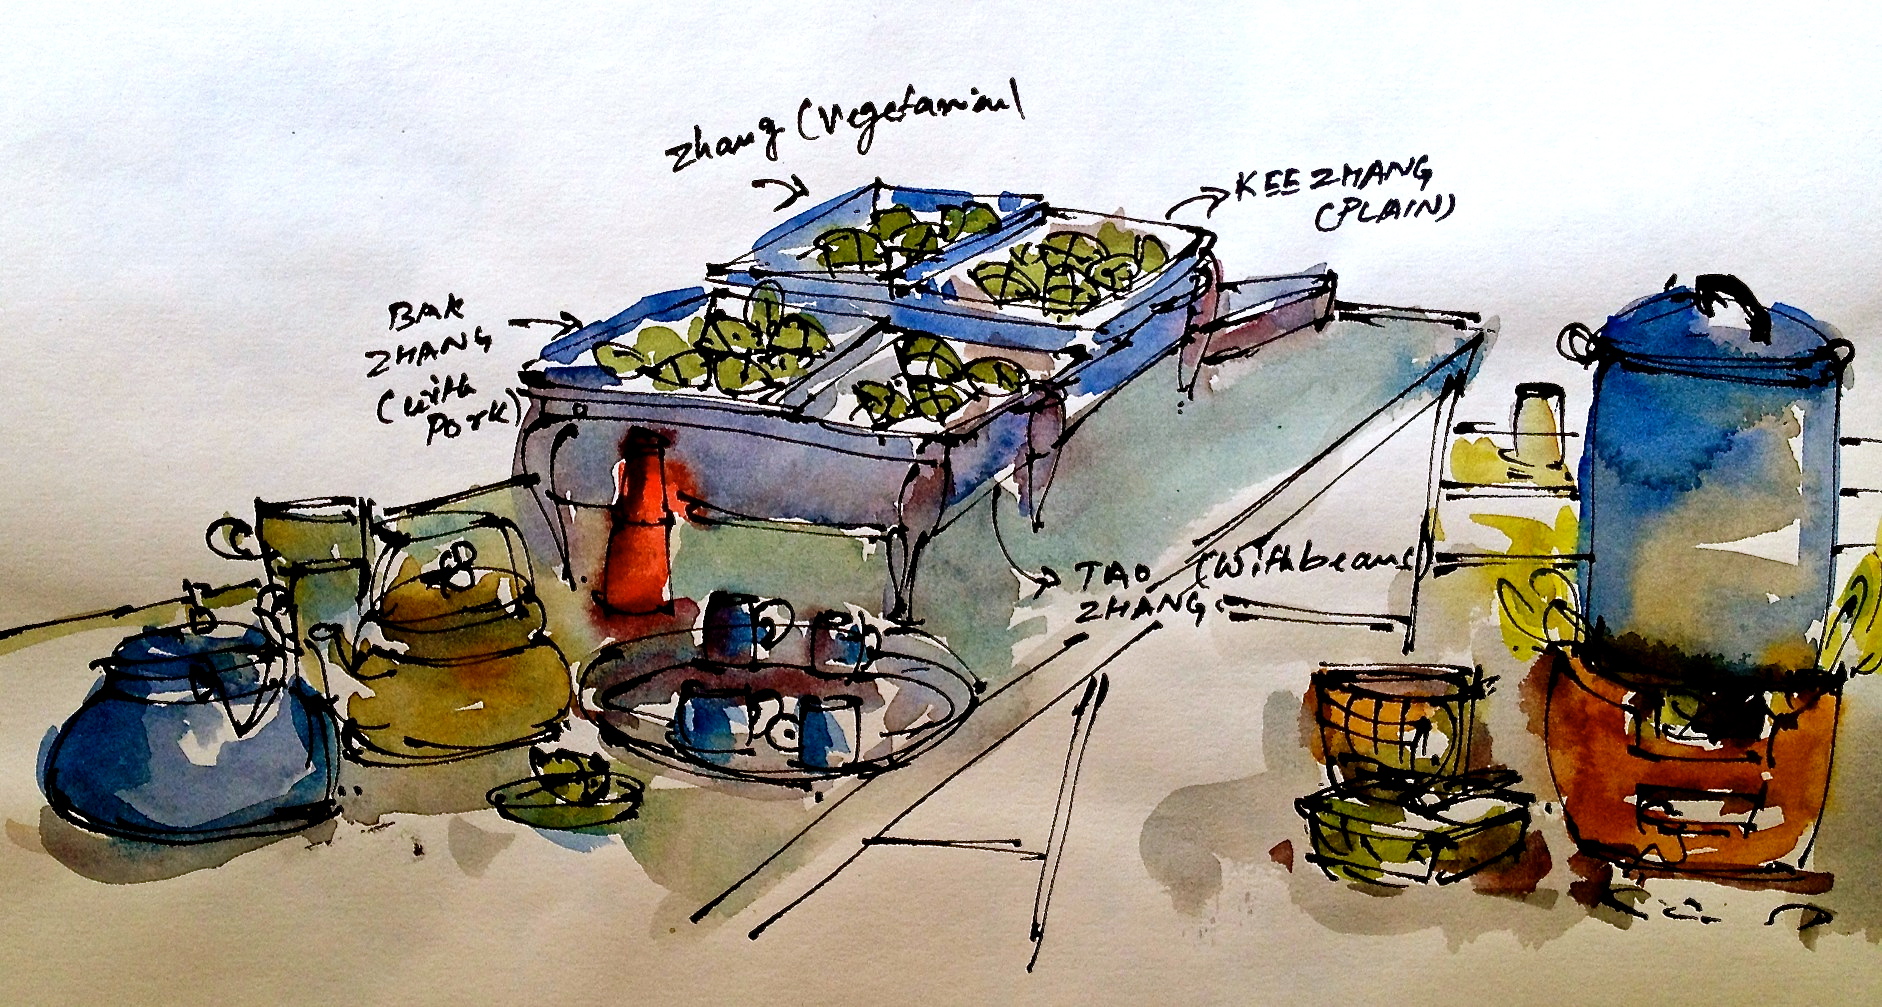 zhang (vegetarian)
KEE ZHANG
(PLAIN)
BAK
ZHANG
(with
Pork)
TAO (with beans)
ZHANG